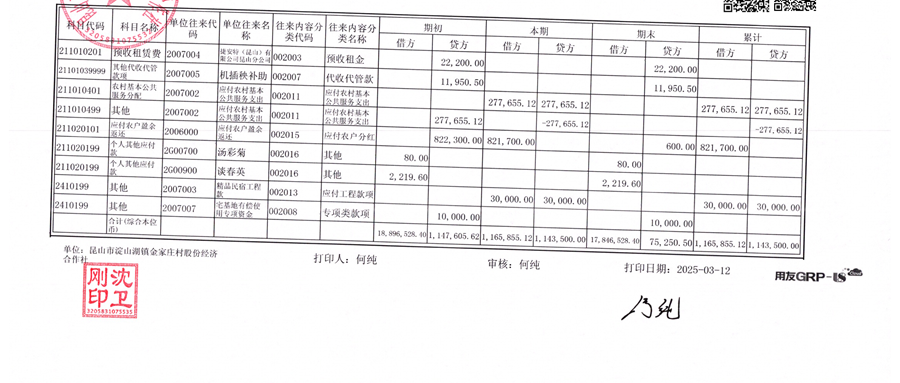 科目代码 科目名称 单位往来代码 单位往来名称 往来内容分类代码 往来内容分类名称 期初 本期 期末 累计
借方 贷方 借方 贷方 借方 贷方 借方 贷方
211010201 预收租赁费 2007004 捷安特(昆山)有限公司昆山分公司 002003 预收租金 22,200.00 22,200.00
21101039999 其他代收代管款项 2007005 机插秧补助 002007 代收代管款 11,950.50 11,950.50
211010401 农村基本公共服务分配 2007002 应付农村基本公共服务支出 002011 应付农村基本公共服务支出 277,655.12 277,655.12 277,655.12 277,655.12
211010499 其他 2007002 应付农村基本公共服务支出 002011 应付农村基本公共服务支出 277,655.12 -277,655.12 -277,655.12
211020101 应付农户盈余返还 2006000 应付农户盈余返还 002015 应付农户分红 822,300.00 821,700.00 600.00 821,700.00
211020199 个人其他应付款 2G00700 汤彩菊 002016 其他 80.00 80.00
211020199 个人其他应付款 2G00900 谈春英 002016 其他 2,219.60 2,219.60
2410199 其他 2007003 精品民宿工程款 002013 应付工程款项 30,000.00 30,000.00 30,000.00 30,000.00
2410199 其他 2007007 宅基地有偿使用专项资金 002008 专项类款项 10,000.00 10,000.00
合计(综合本位币) 18,896,528.40 1,147,605.62 1,165,855.12 1,143,500.00 17,846,528.40 75,250.50 1,165,855.12 1,143,500.00
单位:昆山市淀山湖镇金家庄村股份经济合作社 打印人:何纯 审核:何纯 打印日期:2025-03-12
用友GRP-U8
沈卫刚印
3205831075535